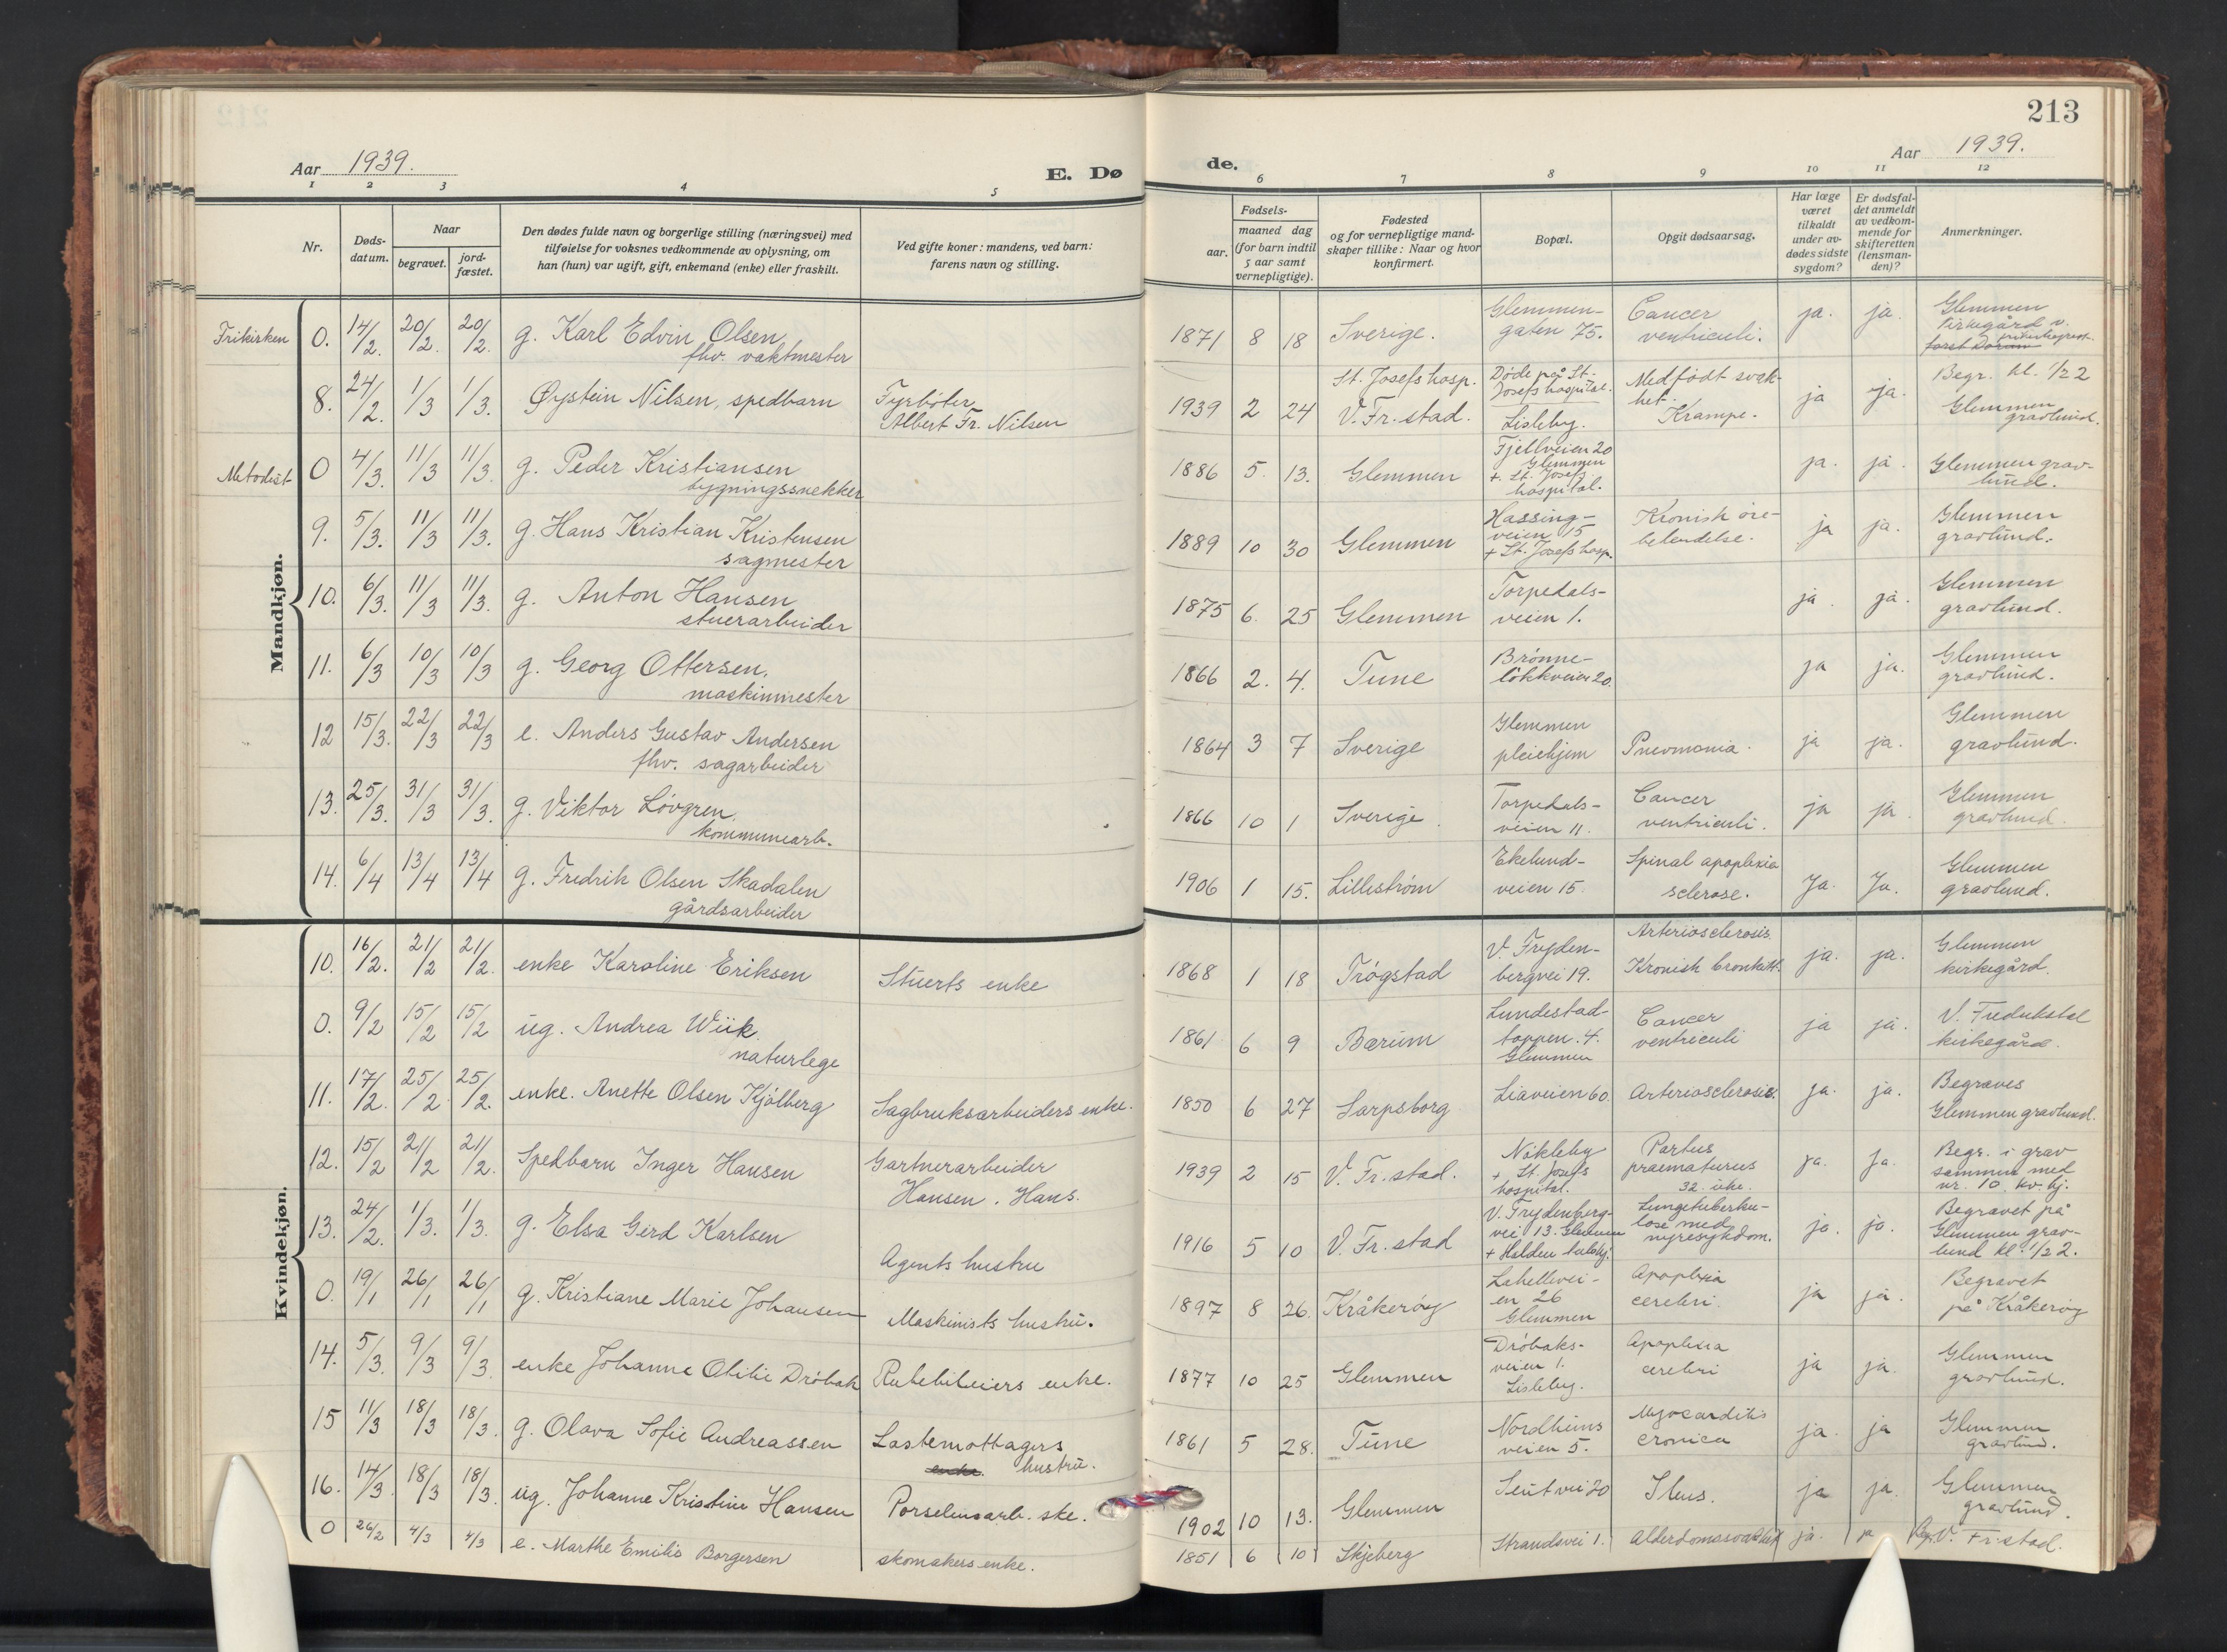 213
Aar 1939.
E. Døde.
Aar 1939.
1 2 3 4 5 6 7 8 9 10 11 12
Nr.
Døds-
datum.
Naar
begravet.
jord-
fæstet.
Den dødes fulde navn og borgerlige stilling (næringsvei) med
tilføielse for voksnes vedkommende av oplysning, om
han (hun) var ugift, gift, enkemand (enke) eller fraskilt.
Ved gifte koner: mandens, ved barn:
farens navn og stilling.
Fødsels-
aar.
maaned dag
(for barn indtil
5 aar samt
vernepligtige).
Fødested
og for vernepligtige mand-
skaper tillike: Naar og hvor
konfirmert.
Bopæl.
Opgit dødsaarsag.
Har læge
været
tilkaldt
under av-
dødes sidste
sygdom?
Er dødsfal-
det anmeldt
av vedkom-
mende for
skifteretten
(lensman-
den)?
Anmerkninger.
Mandkjøn.
Frikirken 0. 14/2. 20/2. 20/2. g. Karl Edvin Olsen,
fhv. vaktmester
1871 8 18 Sverige.
Glemmen-
gaten 75.
Cancer
ventriculi.
ja. ja.
Glemmen
kirkegård v.
8. 24/2. 1/3 1/3. Øystein Nilsen, spedbarn
Fyrbøter
Albert Fr. Nilsen
1939 2 24
St. Josefs hosp.
V. Fr. stad.
Døde på St.
Josefs hospital.
Lisleby.
Medfødt svak-
het.
Krampe.
ja ja.
Begr. kl. 1/2 2
Glemmen
gravlund.
Metodist 0 4/3. 11/3 11/3. g. Peder Kristiansen
bygningssnekker
1886 5. 13. Glemmen
Fjellveien 20
Glemmen
+ St. Josefs
hospital.
ja. ja.
Glemmen grav-
lund.
9. 5/3. 11/3 11/3. g. Hans Kristian Kristensen
sagmester
1889 10 30 Glemmen
Hassing-
veien 15
+ St. Josefs hosp.
Kronisk øre-
betendelse.
ja ja.
Glemmen
gravlund.
10. 6/3. 11/3 11/3. g. Anton Hansen
stuerarbeider
1875 6. 25 Glemmen
Torpedals-
veien 1.
ja. ja.
Glemmen
gravlund.
11. 6/3 10/3 10/3 g. Georg Ottersen,
maskinmester
1866 2. 4. Tune
Brønne-
løkkveien 20.
ja ja.
Glemmen
gravlund.
12 15/3. 22/3 22/3 e. Anders Gustav Andersen
fhv. sagarbeider
1864 3 7 Sverige
Glemmen
pleiehjem
Pneumonia.
ja ja.
Glemmen
gravlund.
13. 25/3. 31/3 31/3. g. Viktor Løvgren,
kommunearb.
1866 10 1 Sverige.
Torpedals-
veien 11.
Cancer
ventriculi.
ja ja.
Glemmen
gravlund.
14. 6/4 13/4 13/4 g. Fredrik Olsen Skadalen
gårdsarbeider
1906 1 15. Lillestrøm
Ekelund-
veien 15.
Spinal apoplexia
sclerose.
Ja. Ja.
Glemmen
gravlund.
Kvindekjøn.
10. 16/2. 21/2 21/2. enke Karoline Eriksen
Stuerts enke
1868 1 18 Trøgstad
V. Fryden-
bergvei 19.
Arteriosclerosis.
Kronisk bronkitt.
ja. ja.
Glemmen
kirkegård.
0. 9/2 15/2 15/2 ug. Andrea Wiik.
naturlege
1861 6 9 Bærum
Lundestad-
toppen. 4.
Glemmen
Cancer
ventriculi
ja ja.
V. Fredrikstad
kirkegård.
11. 17/2. 25/2 25/2. enke. Anette Olsen Kjølberg
Sagbruksarbeiders enke.
1850 6 27 Sarpsborg
Liaveien 60.
Arteriosclerosis.
ja. ja.
Begraves
Glemmen gravlund.
12. 15/2 21/2 21/2. Spedbarn Inger Hansen
Gartnerarbeider
Hansen. Hans.
1939 2 15 V. Fr. stad.
Nøkleby
+ St. Josefs
hospital.
Partus
praematurus
32. uke.
ja. ja.
Begr. i grav
sammen med
nr. 10. kv. kj.
13. 24/2. 1/3. 1/3. g. Elsa Gerd Karlsen
Agents hustru
1916 5 10 V. Fr. stad
V. Frydenberg-
vei 13. Glemmen
+ Halden
Lungetuberku-
lose med
nyresykdom.
ja. ja.
Begravet på
Glemmen grav-
lund kl. 1/2 2.
0. 19/1 26/1 26/1 g. Kristiane Marie Johansen
Maskinists hustru.
1897 8 26. Kråkerøy
Lahellevei-
en 26
Glemmen
Apoplexia
cerebri.
ja ja.
Begravet
på Kråkerøy
14. 5/3. 9/3 9/3. enke Johanne Otilie Drøbak
Rutebileiers enke.
1877 10 25 Glemmen
Drøbaks-
veien 1.
Lisleby.
Apoplexia
cerebri
ja ja.
Glemmen
gravlund.
15 11/3 18/3 18/3. g. Olava Sofie Andreassen
Lastemottagers
enke. hustru.
1861 5 28. Tune
Nordheims
veien 5.
Myocarditis
cronica
ja. ja
Glemmen
gravlund.
16. 14/3. 18/3 18/3. ug. Johanne Kristine Hansen
Porselensarb. ske.
1902 10 13. Glemmen
Seutvei 20
Ileus.
ja ja.
Glemmen
gravlund.
0 26/2 4/3 4/3 e. Marthe Emilie Borgersen
skomakers enke.
1851 6 10 Skjeberg
Strandsvei 1.
Alderdomssvakhet
ja. ja
Begr. V. Fr. stad.